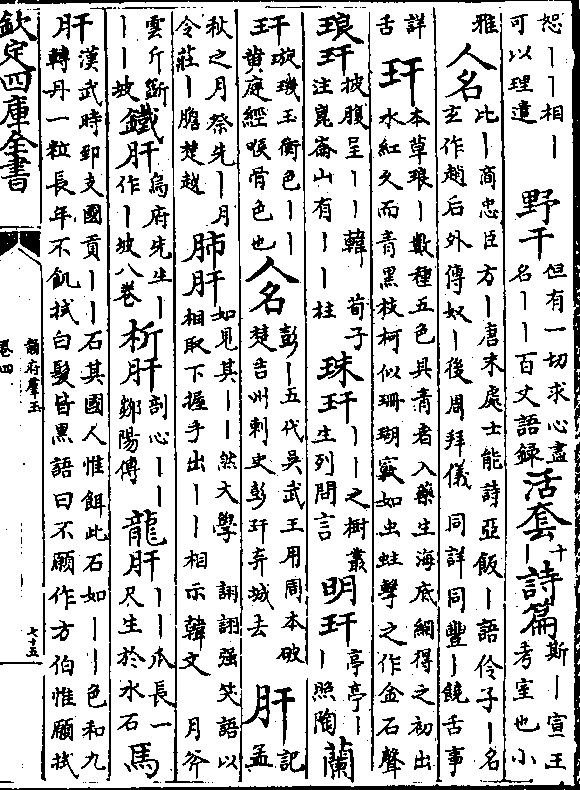 恕丨丨相丨
可以理遣
野干
但有一切求心盡
名丨丨百丈語録
活套
十丨詩篇
斯丨宣王
考室也小
雅
人名
比丨商忠臣方丨唐末處士能詩亞飯丨語伶子丨名
玄作趙后外傳奴丨後周拜儀同詳同豐丨饒舌事
詳
舌
玕
本草琅丨數種五色具青者入藥生海底網得之初出
水紅久而青黑枝柯似珊瑚竅如虫蛀擊之作金石聲
琅玕
披腹呈丨丨韓荀子
注崑崙山有丨丨柱
珠玕
丨丨之樹叢
生列問言
明玕
亭亭丨
丨照陶
蘭
玕
琁璣玉衡色丨丨
黄庭經喉骨色也
人名
彭丨五代吳武王用周本破
楚吉州刺史彭玕弃城去
肝
記
孟
秋之月祭先丨月
令莊丨膽楚越
肺肝
如見其丨丨然大學詡詡强笑語以
相取下握手出丨丨相示韓文月斧
雲斤斷
丨丨坡
鐵肝
烏府先生丨
作丨坡八卷
析肝
剖心丨丨
鄒陽傳
龍肝
丨丨瓜長一
尺生於水石
馬
肝
漢武時郅支國貢丨丨石其國人惟餌此石如丨丨色和九
轉丹一粒長年不飢拭白髮皆黑語曰不願作方伯惟願拭
欽定四庫全書
韻府羣玉
卷四
七十五